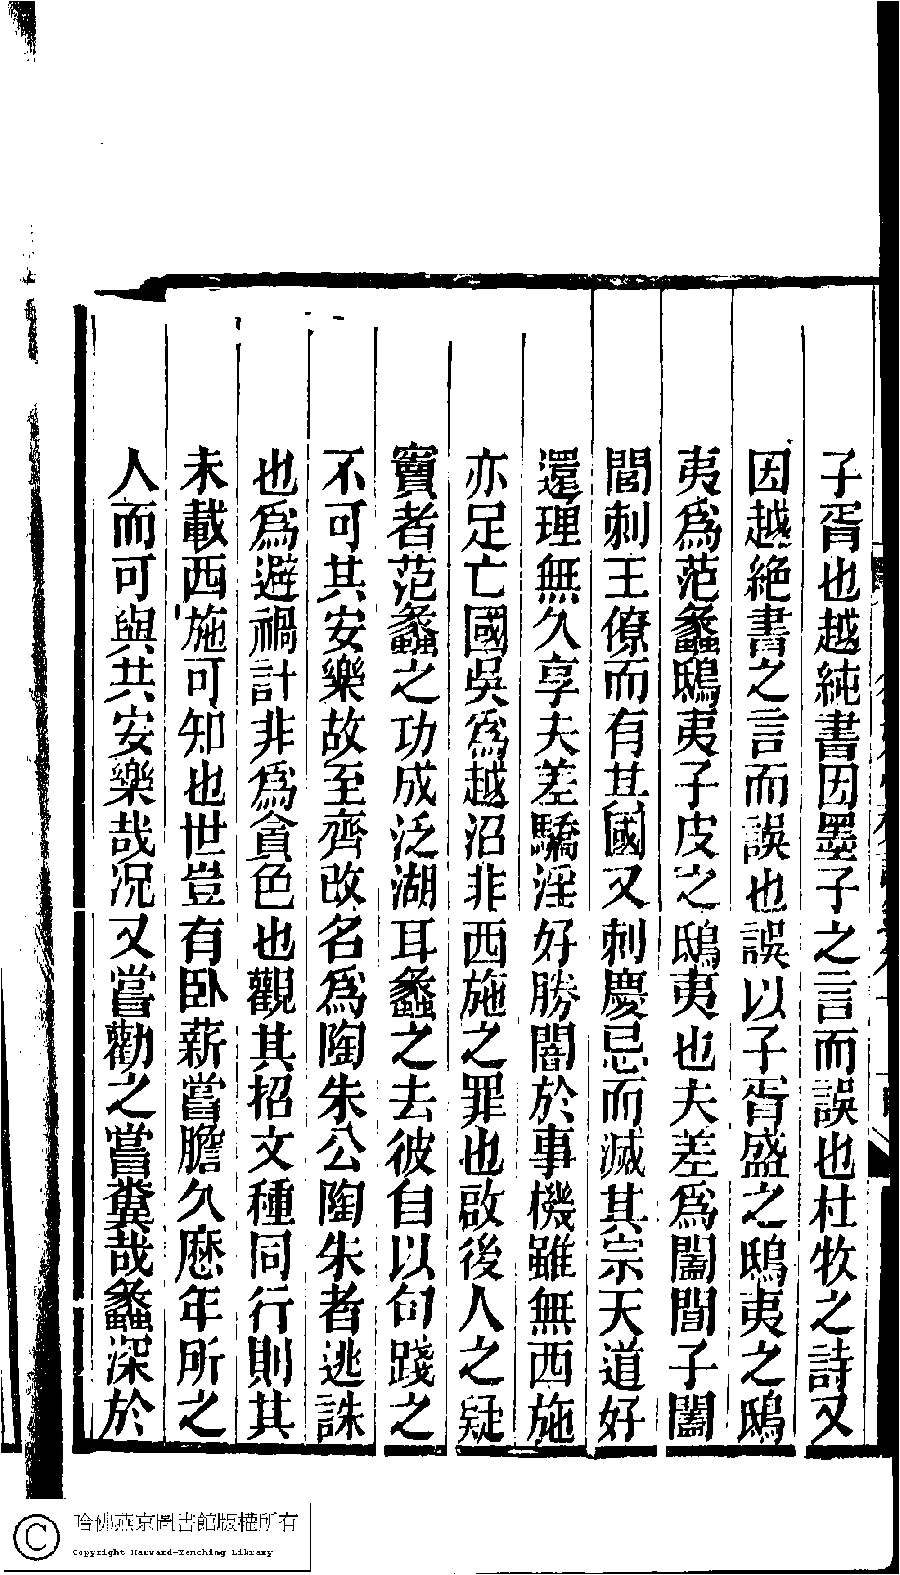 子胥也越純書因墨子之言而誤也杜牧之詩又
因越絶書之言而誤也誤以子胥盛之鴟夷之鴟
夷爲范蠡鴟夷子皮之鴟夷也夫差爲闔閭子闔
閭刺王僚而有其國又刺慶忌而滅其宗天道好
還理無久享夫差驕淫好勝闇於事機雖無西施
亦足亡國吳爲越沼非西施之罪也啟後人之疑
竇者范蠡之功成泛湖耳蠡之去彼自以句踐之
不可其安樂故至齊改名爲陶朱公陶朱者逃誅
也爲避禍計非爲貪色也觀其招文種同行則其
未載西施可知也世豈有臥薪嘗膽久歷年所之
人而可與共安樂哉况又嘗勸之嘗糞哉蠡深於
哈佛燕京圖書館版權所有
Copyright Harvard-Yenching Library